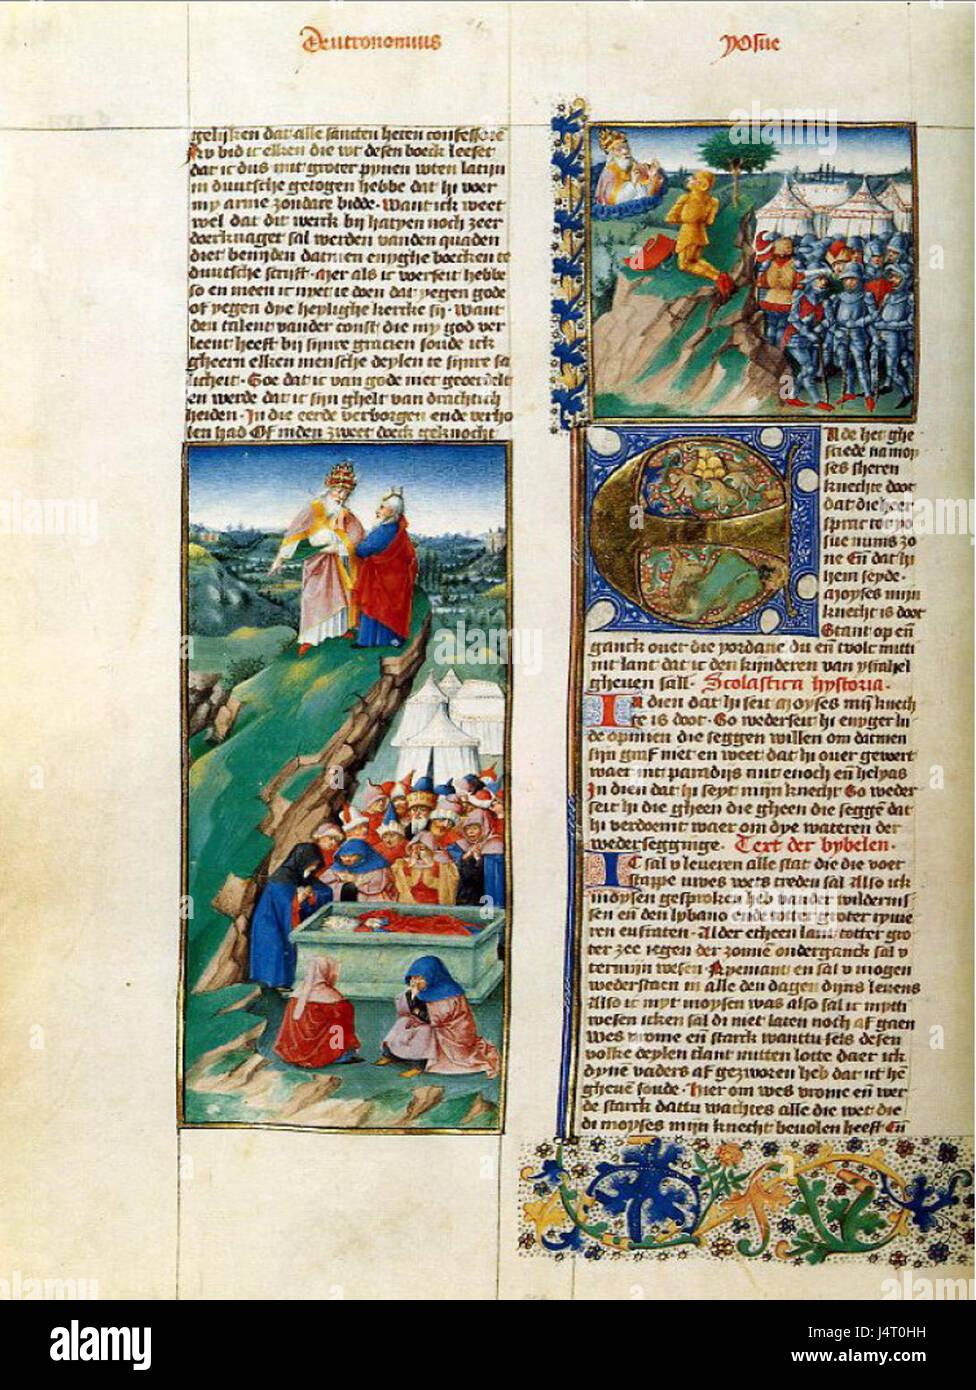 Deutronomius
yosue
gelijken dat alle sancten heren confessorē
Nv bid ic elken die wt desen boeck leeset
dat ic dus mit groter pynen wten latijn
in duutsche getogen hebbe dat hi voer
my arme zondare bidde. Want ick weet
wel dat dit werck bij hatyen noch zeer
doerknaget sal werden vanden quaden
diet beniden datmen enyghe boecken te
duutsche scrijft. Mer als ic voerseit hebbe
so en meen ic niet te doen dat yegen gode
of yegen dye heylighe kercke sij. Want
den talent vander const die my god ver
leent heeft bij sijnre gracien soude ick
gheern elken mensche deylen te sijnre sa
licheit. Soe dat ic van gode niet geordelt
en werde dat ic sijn ghelt van drachtich
heiden. In die eerde verborgen ende verho
len had Of inden zweet doeck geknocht
Ende het ghe
sciede na moy
ses sheren
knechte doot
dat die heer
sprac tot yo
sue nuns zo
ne Eñ dat hi
hem seyde.
Moyses mijn
knecht is doot
Stant op eñ
ganck ouer die yordane du eñ tvolc mitti
int lant dat ic den kijnderen van ysrahel
gheuen sall. Scolastica hystoria.
In dien dat hi seit Moyses mijn knech
te is doot. So wederseit hi enyger li
de opinien die seggen willen om datmen
sijn graf niet en weet dat hi ouer gevoert
waer int paradijs mit enoch eñ helyas
In dien dat hi seyt mijn knecht So weder
seit hi die gheen die gheen die seggē dat
hi verdoemt waer om dye wateren der
wedersegginge. Text der bybelen.
Ic sal v leueren alle stat die die voet
stappe uwes wets treden sal Also ick
moysen gesproken heb vander wildernis
sen eñ den lybano ende totter groter ryuie
ren eufraten. Alder etheen lant totter gro
ter zee iegen der zonnē onderganck sal v
termijn wesen. Nyemant en sal v mogen
wederstaen in alle den dagen dijns leuens
Also ic myt moysen was also sal ic mytti
wesen icken sal di niet laten noch af gaen
Wes vrome eñ starck wanttu sels desen
volke deylen tlant mitten lotte daer ick
dyne vaders af gezworen heb dat ic hē
gheuē soude. Hier om wes vrome eñ wer
de starck dattu wachtes alle die wet die
di moyses mijn knecht beuolen heeft Eñ
alamy
Image ID: J4T0HH
www.alamy.com